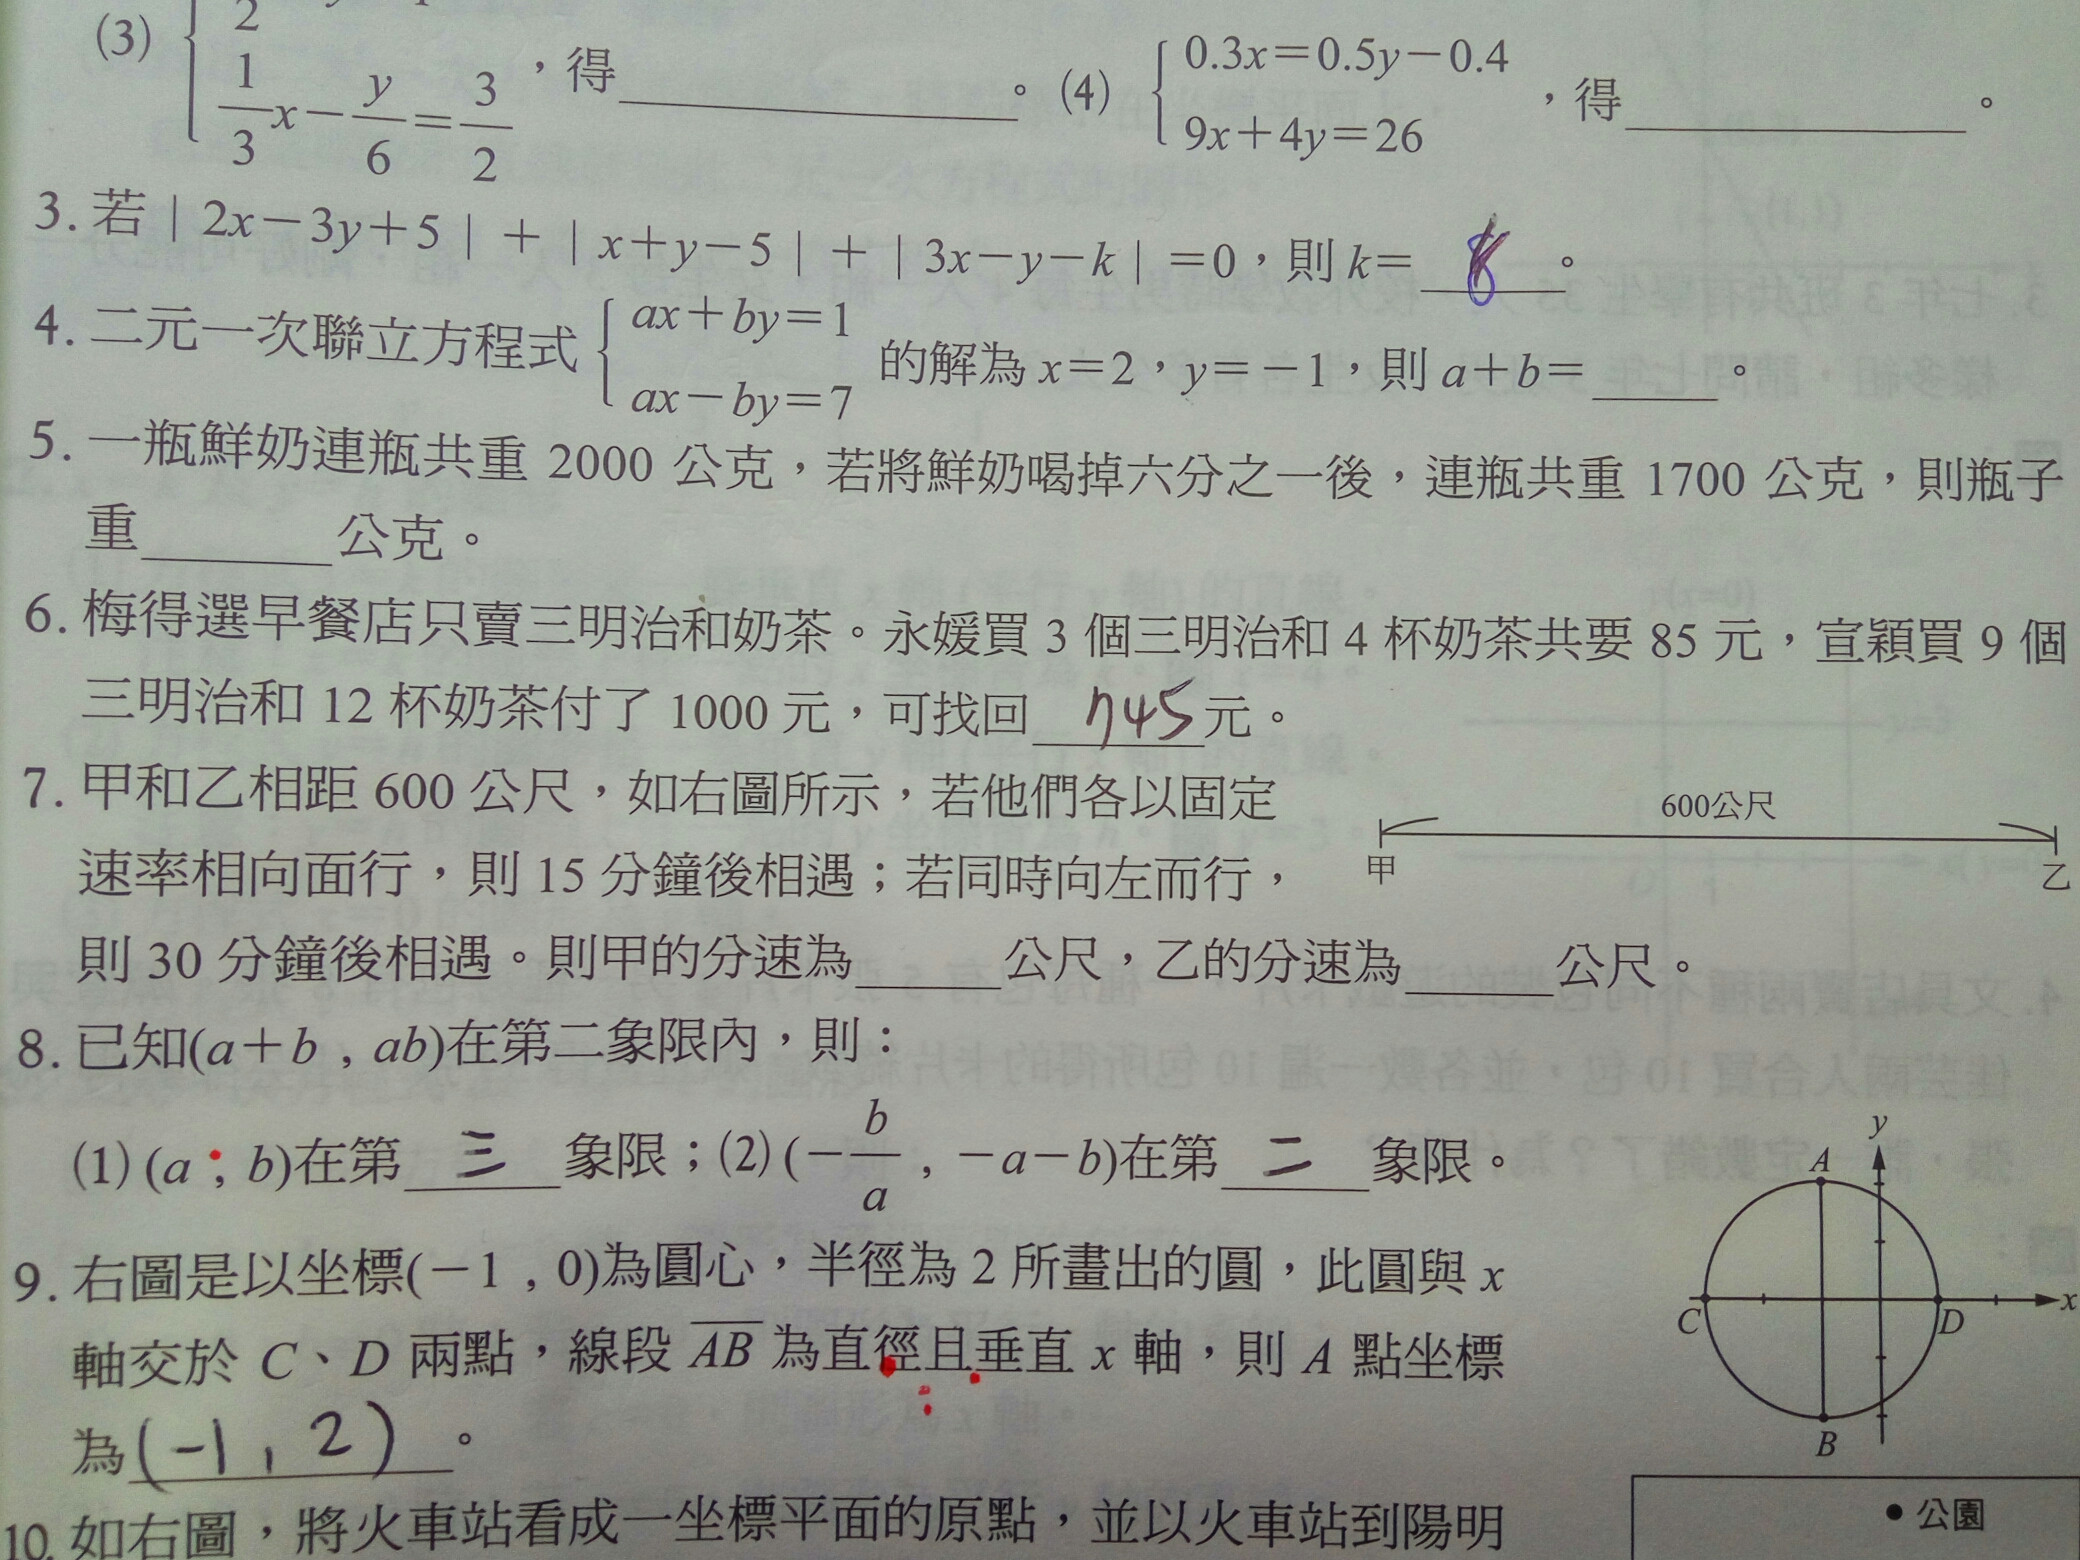 (3) 2
1/3 x－y/6＝3/2 ，得________。 (4) { 0.3x＝0.5y－0.4
9x＋4y＝26 ，得________。
3. 若｜2x－3y＋5｜＋｜x＋y－5｜＋｜3x－y－k｜＝0，則 k＝ 8 。
4. 二元一次聯立方程式 { ax＋by＝1
ax－by＝7 的解為 x＝2，y＝－1，則 a＋b＝____。
5. 一瓶鮮奶連瓶共重 2000 公克，若將鮮奶喝掉六分之一後，連瓶共重 1700 公克，則瓶子
重______公克。
6. 梅得選早餐店只賣三明治和奶茶。永媛買 3 個三明治和 4 杯奶茶共要 85 元，宣穎買 9 個
三明治和 12 杯奶茶付了 1000 元，可找回 745 元。
7. 甲和乙相距 600 公尺，如右圖所示，若他們各以固定
速率相向面行，則 15 分鐘後相遇；若同時向左而行，
則 30 分鐘後相遇。則甲的分速為____公尺，乙的分速為____公尺。
600公尺
甲
乙
8. 已知(a＋b , ab)在第二象限內，則：
(1) (a , b)在第 三 象限；(2) (－b/a , －a－b)在第 二 象限。
9. 右圖是以坐標(－1 , 0)為圓心，半徑為 2 所畫出的圓，此圓與 x
軸交於 C、D 兩點，線段 AB 為直徑且垂直 x 軸，則 A 點坐標
為 (-1 , 2) 。
y
A
x
C
D
B
10. 如右圖，將火車站看成一坐標平面的原點，並以火車站到陽明
• 公園